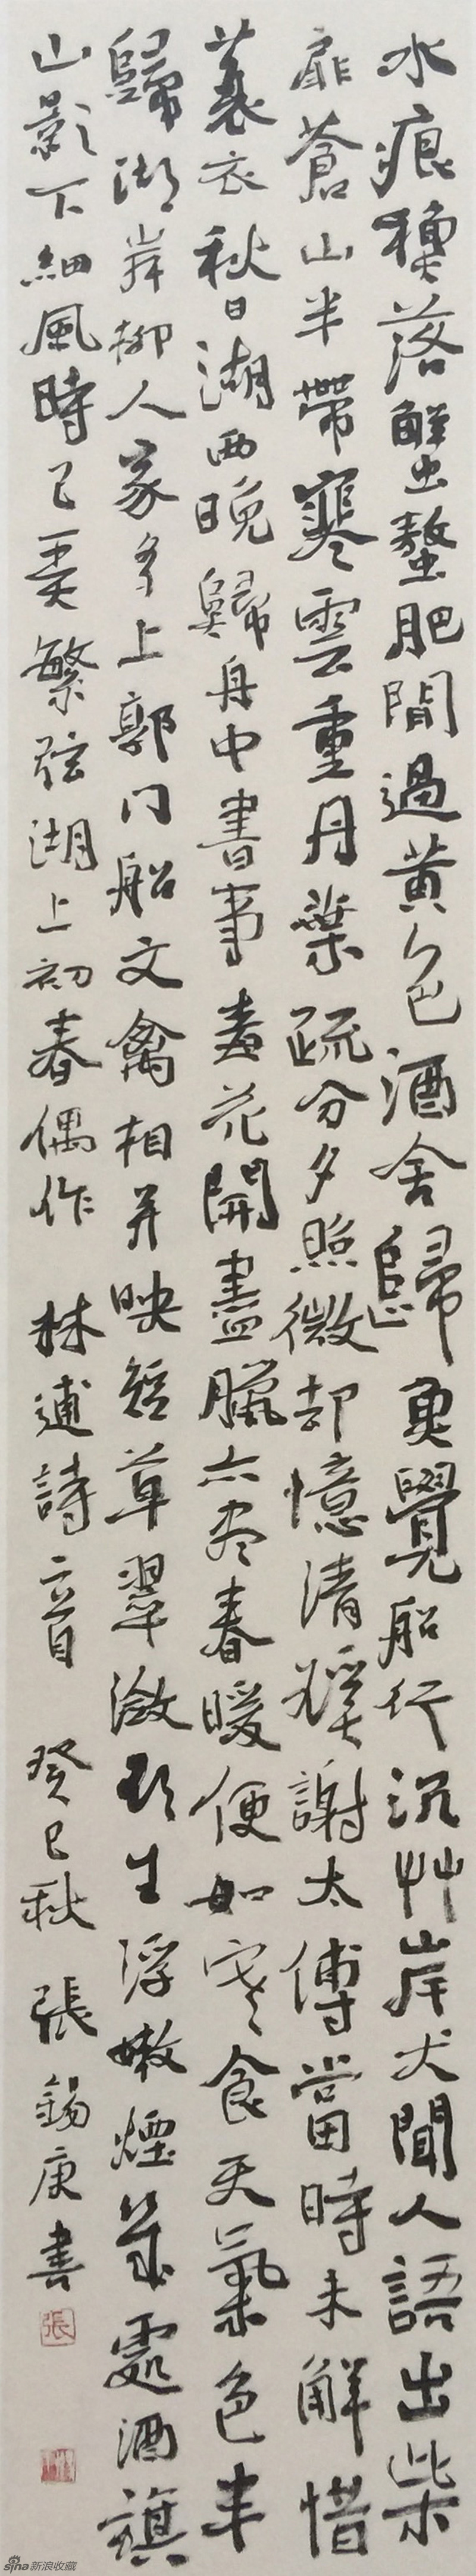 水痕穐落蟹螯肥閒過黄公酒舍歸魚覺船行沉艸岸犬聞人語出柴
扉蒼山半帶寒雲重丹葉疏分夕照微却憶清谿謝太傅當時未解惜
蓑衣秋日湖西晚歸舟中書事梅花開盡臘亦尽春暖便如寒食天氣色半
歸湖岸柳人家多上郭门船文禽相并映短草翠潋欲生浮嫩煙幾處酒旗
山影下細風時已弄繁弦湖上初春偶作 林逋詩二首 癸巳秋 張錫庚書
張
sina新浪收藏